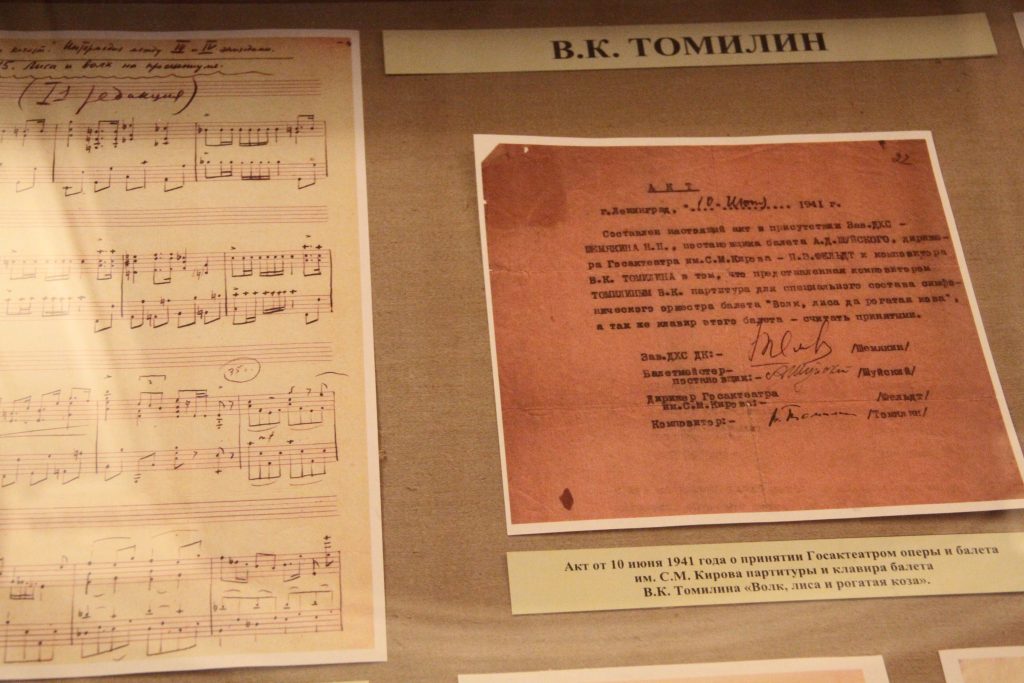 В.К. ТОМИЛИН
Интермедия между III и IV эпизодами.
15. Лиса и волк на просцениуме.
(II редакция)
35.
mf
22
АКТ
г.Ленинград, "..10. Июня.......... 1941 г.
Составлен настоящий акт в присутствии Зав.ДХС -
ШЕМЯКИНА Н.Н., постановщика балета А.Д.ШУЙСКОГО, дириже-
ра Госактеатра им.С.М.Кирова - П.Э.ФЕЛЬДТ и композитора
В.К. ТОМИЛИНА в том, что представленная композитором
ТОМИЛИНЫМ В.К. партитура для специального состава симфо-
нического оркестра балета "Волк, лиса да рогатая коза",
а так же клавир этого балета - считать принятыми.
Зав.ДХС ДК:- /Шемякин/
Балетмейстер-
постановщик:- АШуйский /Шуйский/
Дирижер Госактеатра
им.С.М.Кирова:- /Фельдт/
Композитор:- В. Томилин /Томилин/
Акт от 10 июня 1941 года о принятии Госактеатром оперы и балета
им. С.М. Кирова партитуры и клавира балета
В.К. Томилина «Волк, лиса и рогатая коза».